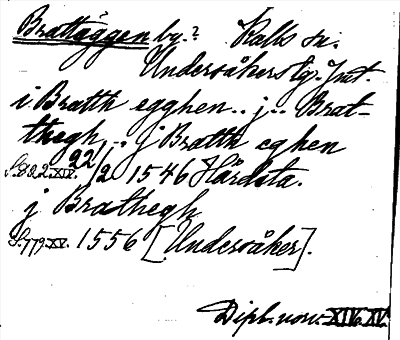 Brattäggen by.? Kalls sn.
Undersåkers tg. Jmt.
i Bratth egghen .. j .. Brat-
thegh .. j Bratth eghen
S. 822. XIV. 22/2 1546 Hårdsta.
j Brathegh
S. 779. XV. 1556 [Undersåker].
Dipl. norv. XIV. XV.